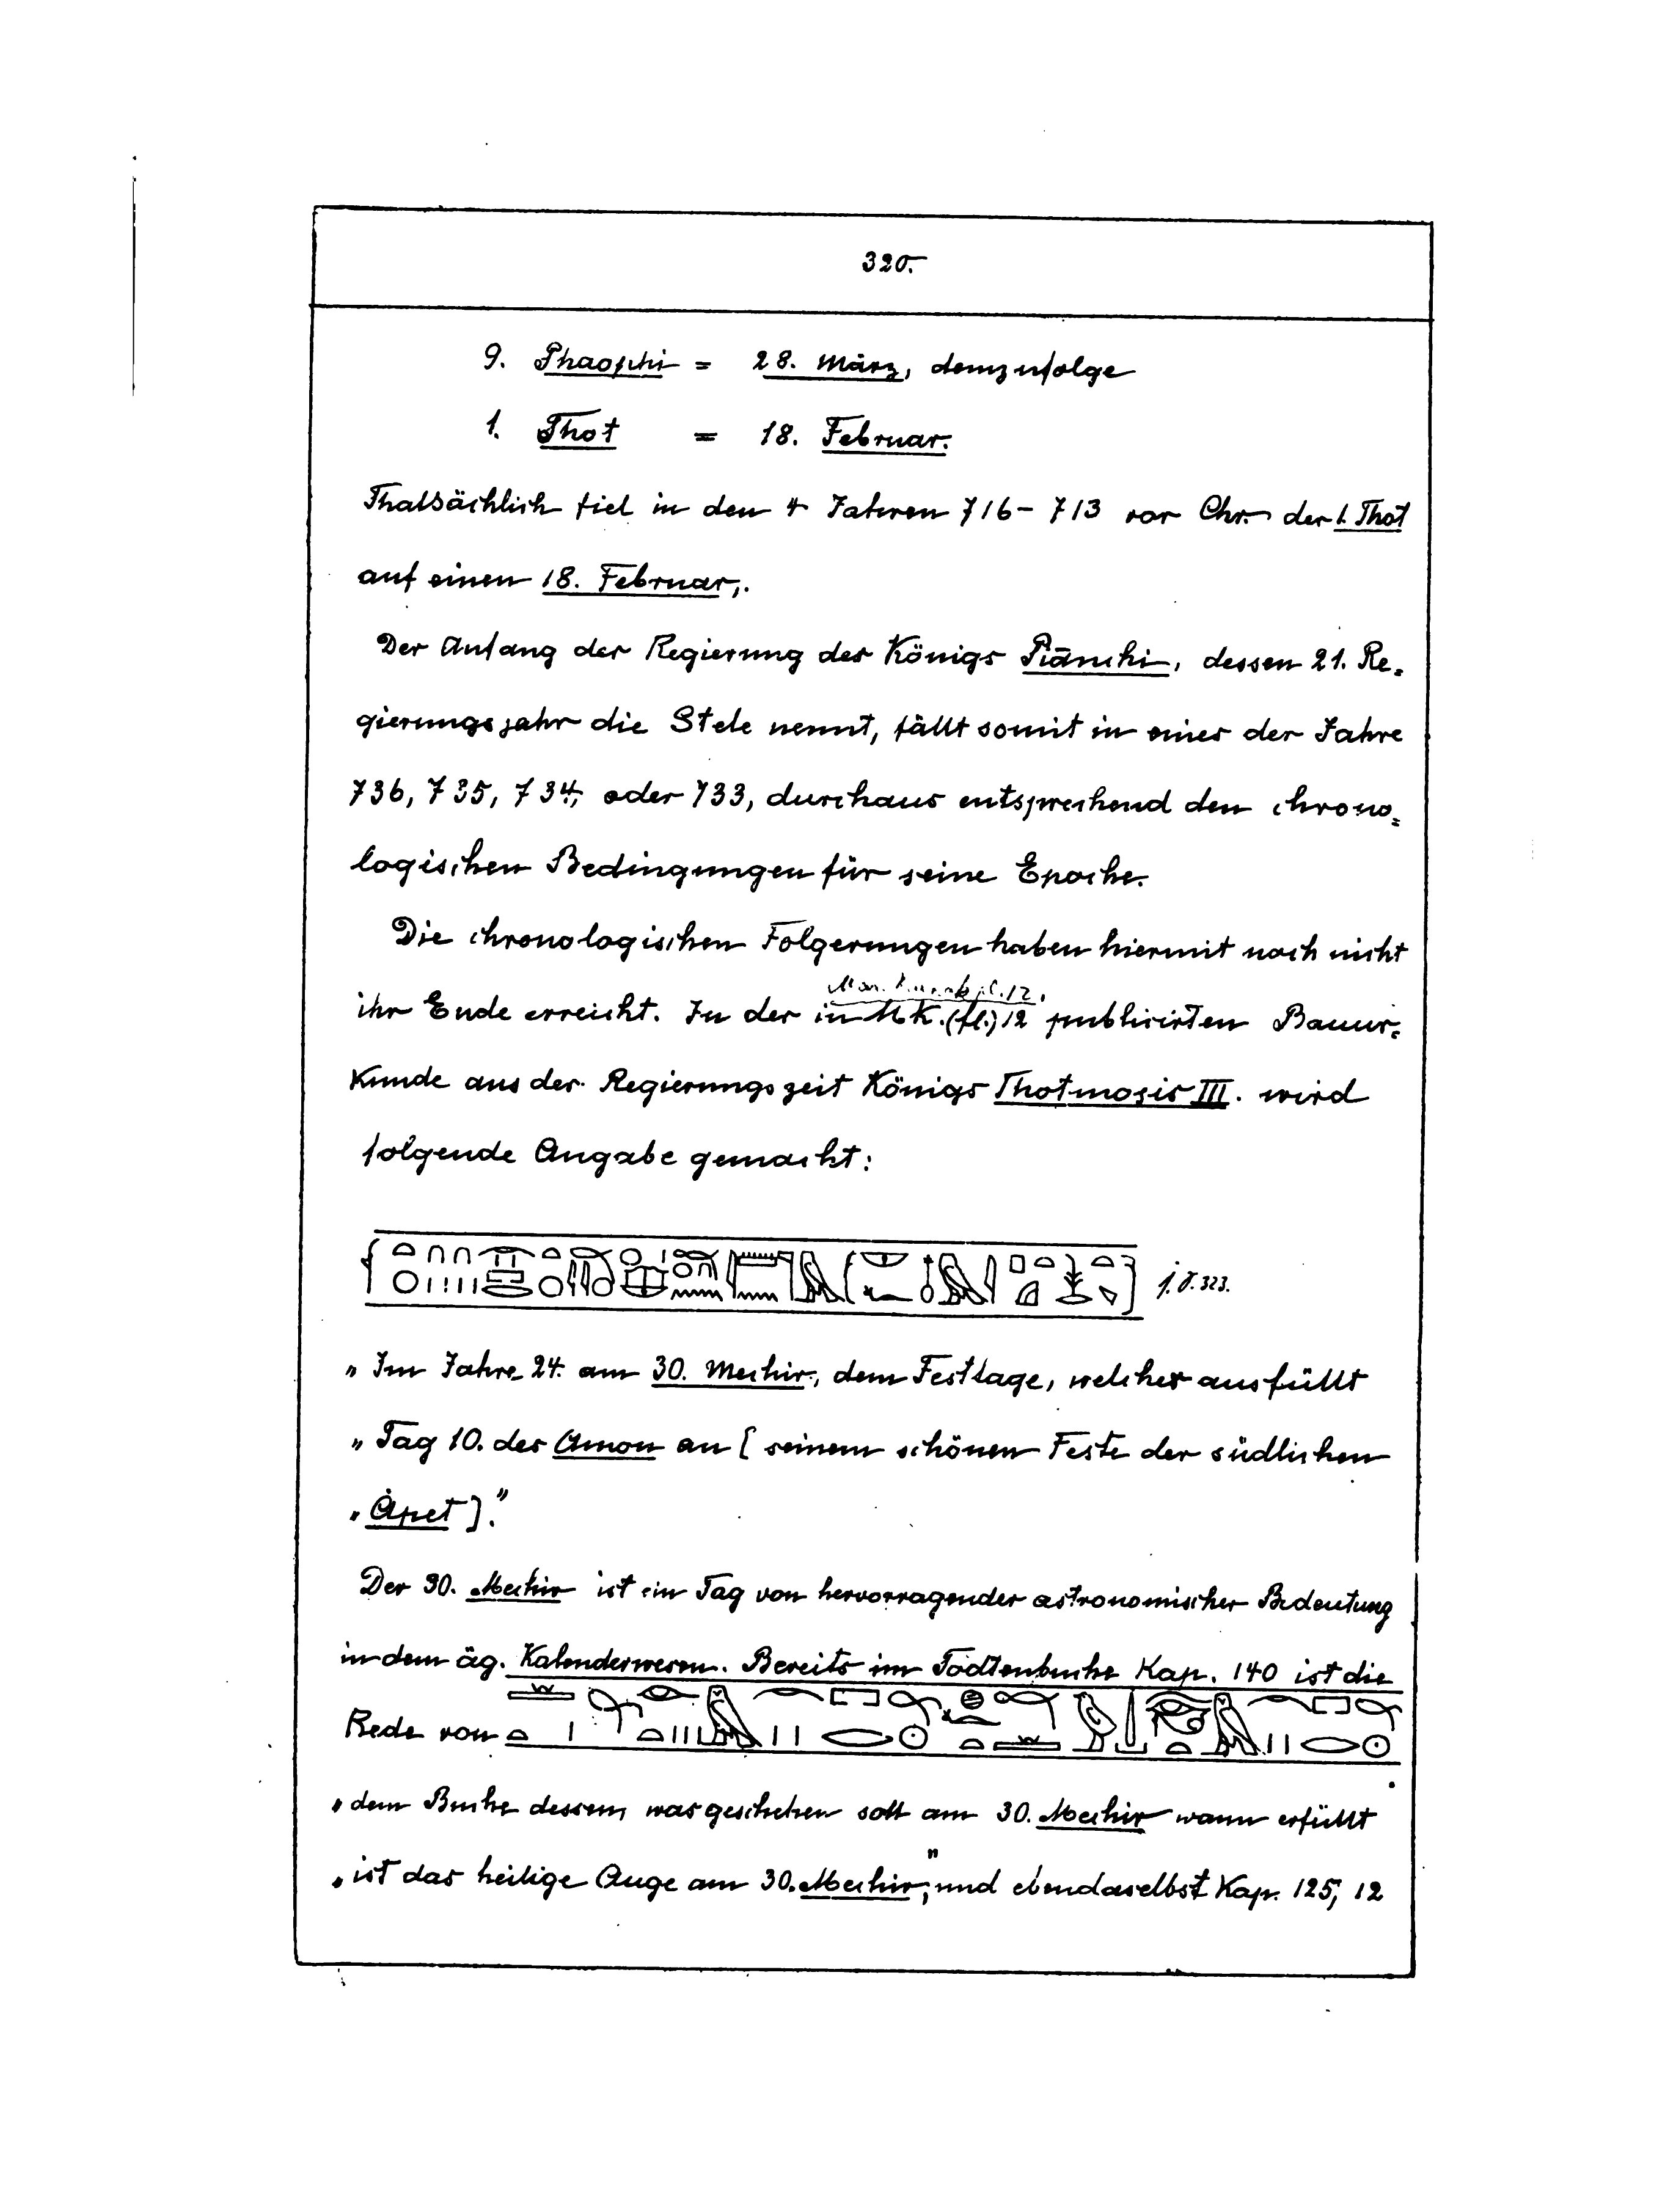 320.
9. Phaophi = 28. März, demzufolge
1. Thot = 18. Februar.
Thatsächlich fiel in den 4 Jahren 716 - 713 vor Chr. der 1. Thot
auf einen 18. Februar,.
Der Anfang der Regierung des Königs Piānchi, dessen 21. Re=
gierungsjahr die Stele nennt, fällt somit in eines der Jahre
736, 735, 734, oder 733, durchaus entsprechend den chrono=
logischen Bedingungen für seine Epoche.
Die chronologischen Folgerungen haben hiermit noch nicht
pl. 12,
ihr Ende erreicht. In der in MK. (fl.) 12 publicirten Bauur=
kunde aus der Regierungszeit Königs Thotmosis III. wird
folgende Angabe gemacht:
323.
„Im Jahre 24. am 30. Mechir, dem Festtage, welcher ausfüllt
„Tag 10. des Amon an [seinem schönen Feste der südlichen
„Apet]."
Der 30. Mechir ist ein Tag von hervorragender astronomischer Bedeutung
in dem äg. Kalenderwesen. Bereits im Todtenbuche Kap. 140 ist die
Rede von
„dem Buche dessen, was geschehen soll am 30. Mechir wann erfüllt
„ist das heilige Auge am 30. Mechir", und ebendaselbst Kap. 125, 12